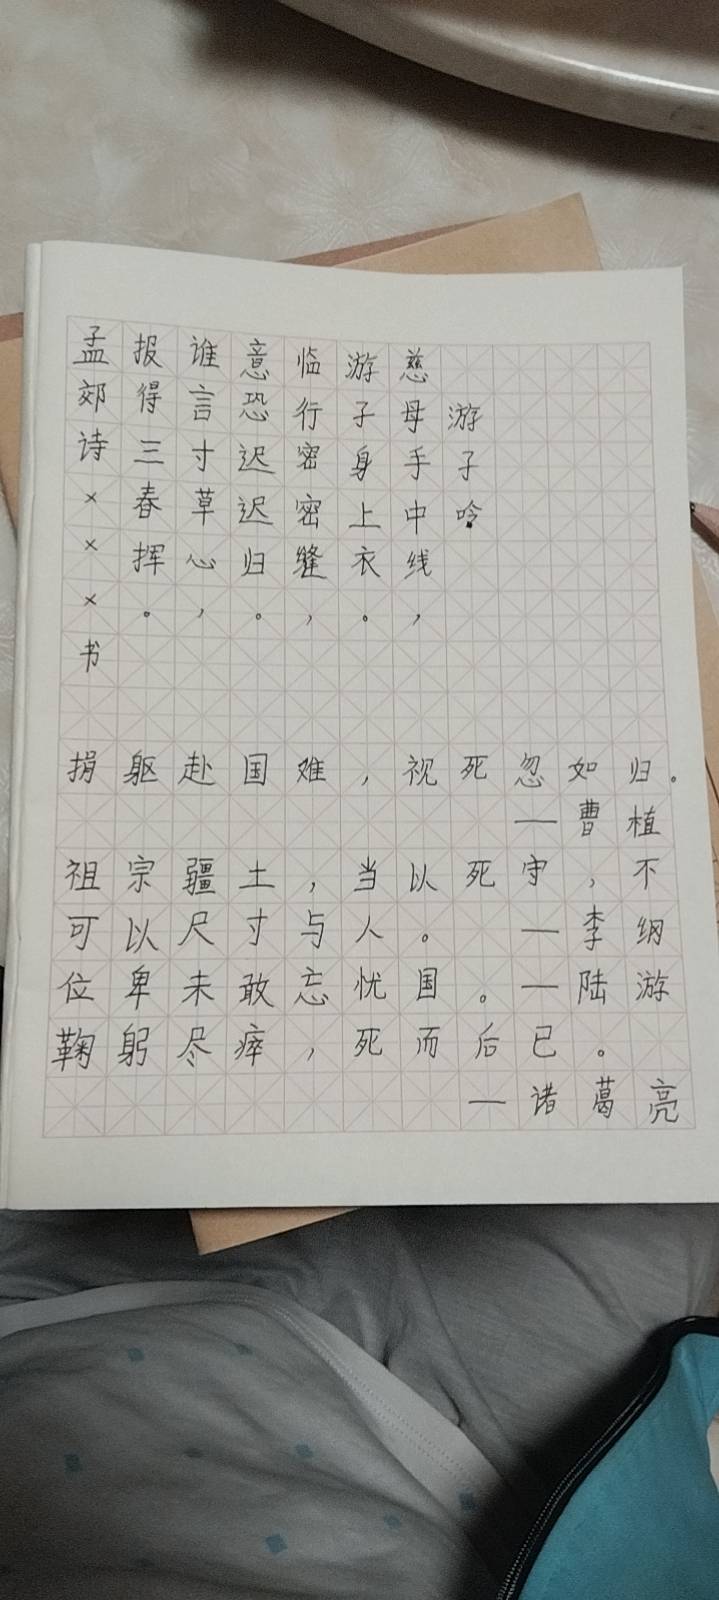 游子吟
慈母手中线，
游子身上衣。
临行密密缝，
意恐迟迟归。
谁言寸草心，
报得三春挥。
孟郊诗×××书
捐躯赴国难，视死忽如归。
—曹植
祖宗疆土，当以死守，不
可以尺寸与人。 —李纲
位卑未敢忘忧国。—陆游
鞠躬尽瘁，死而后已。
—诸葛亮